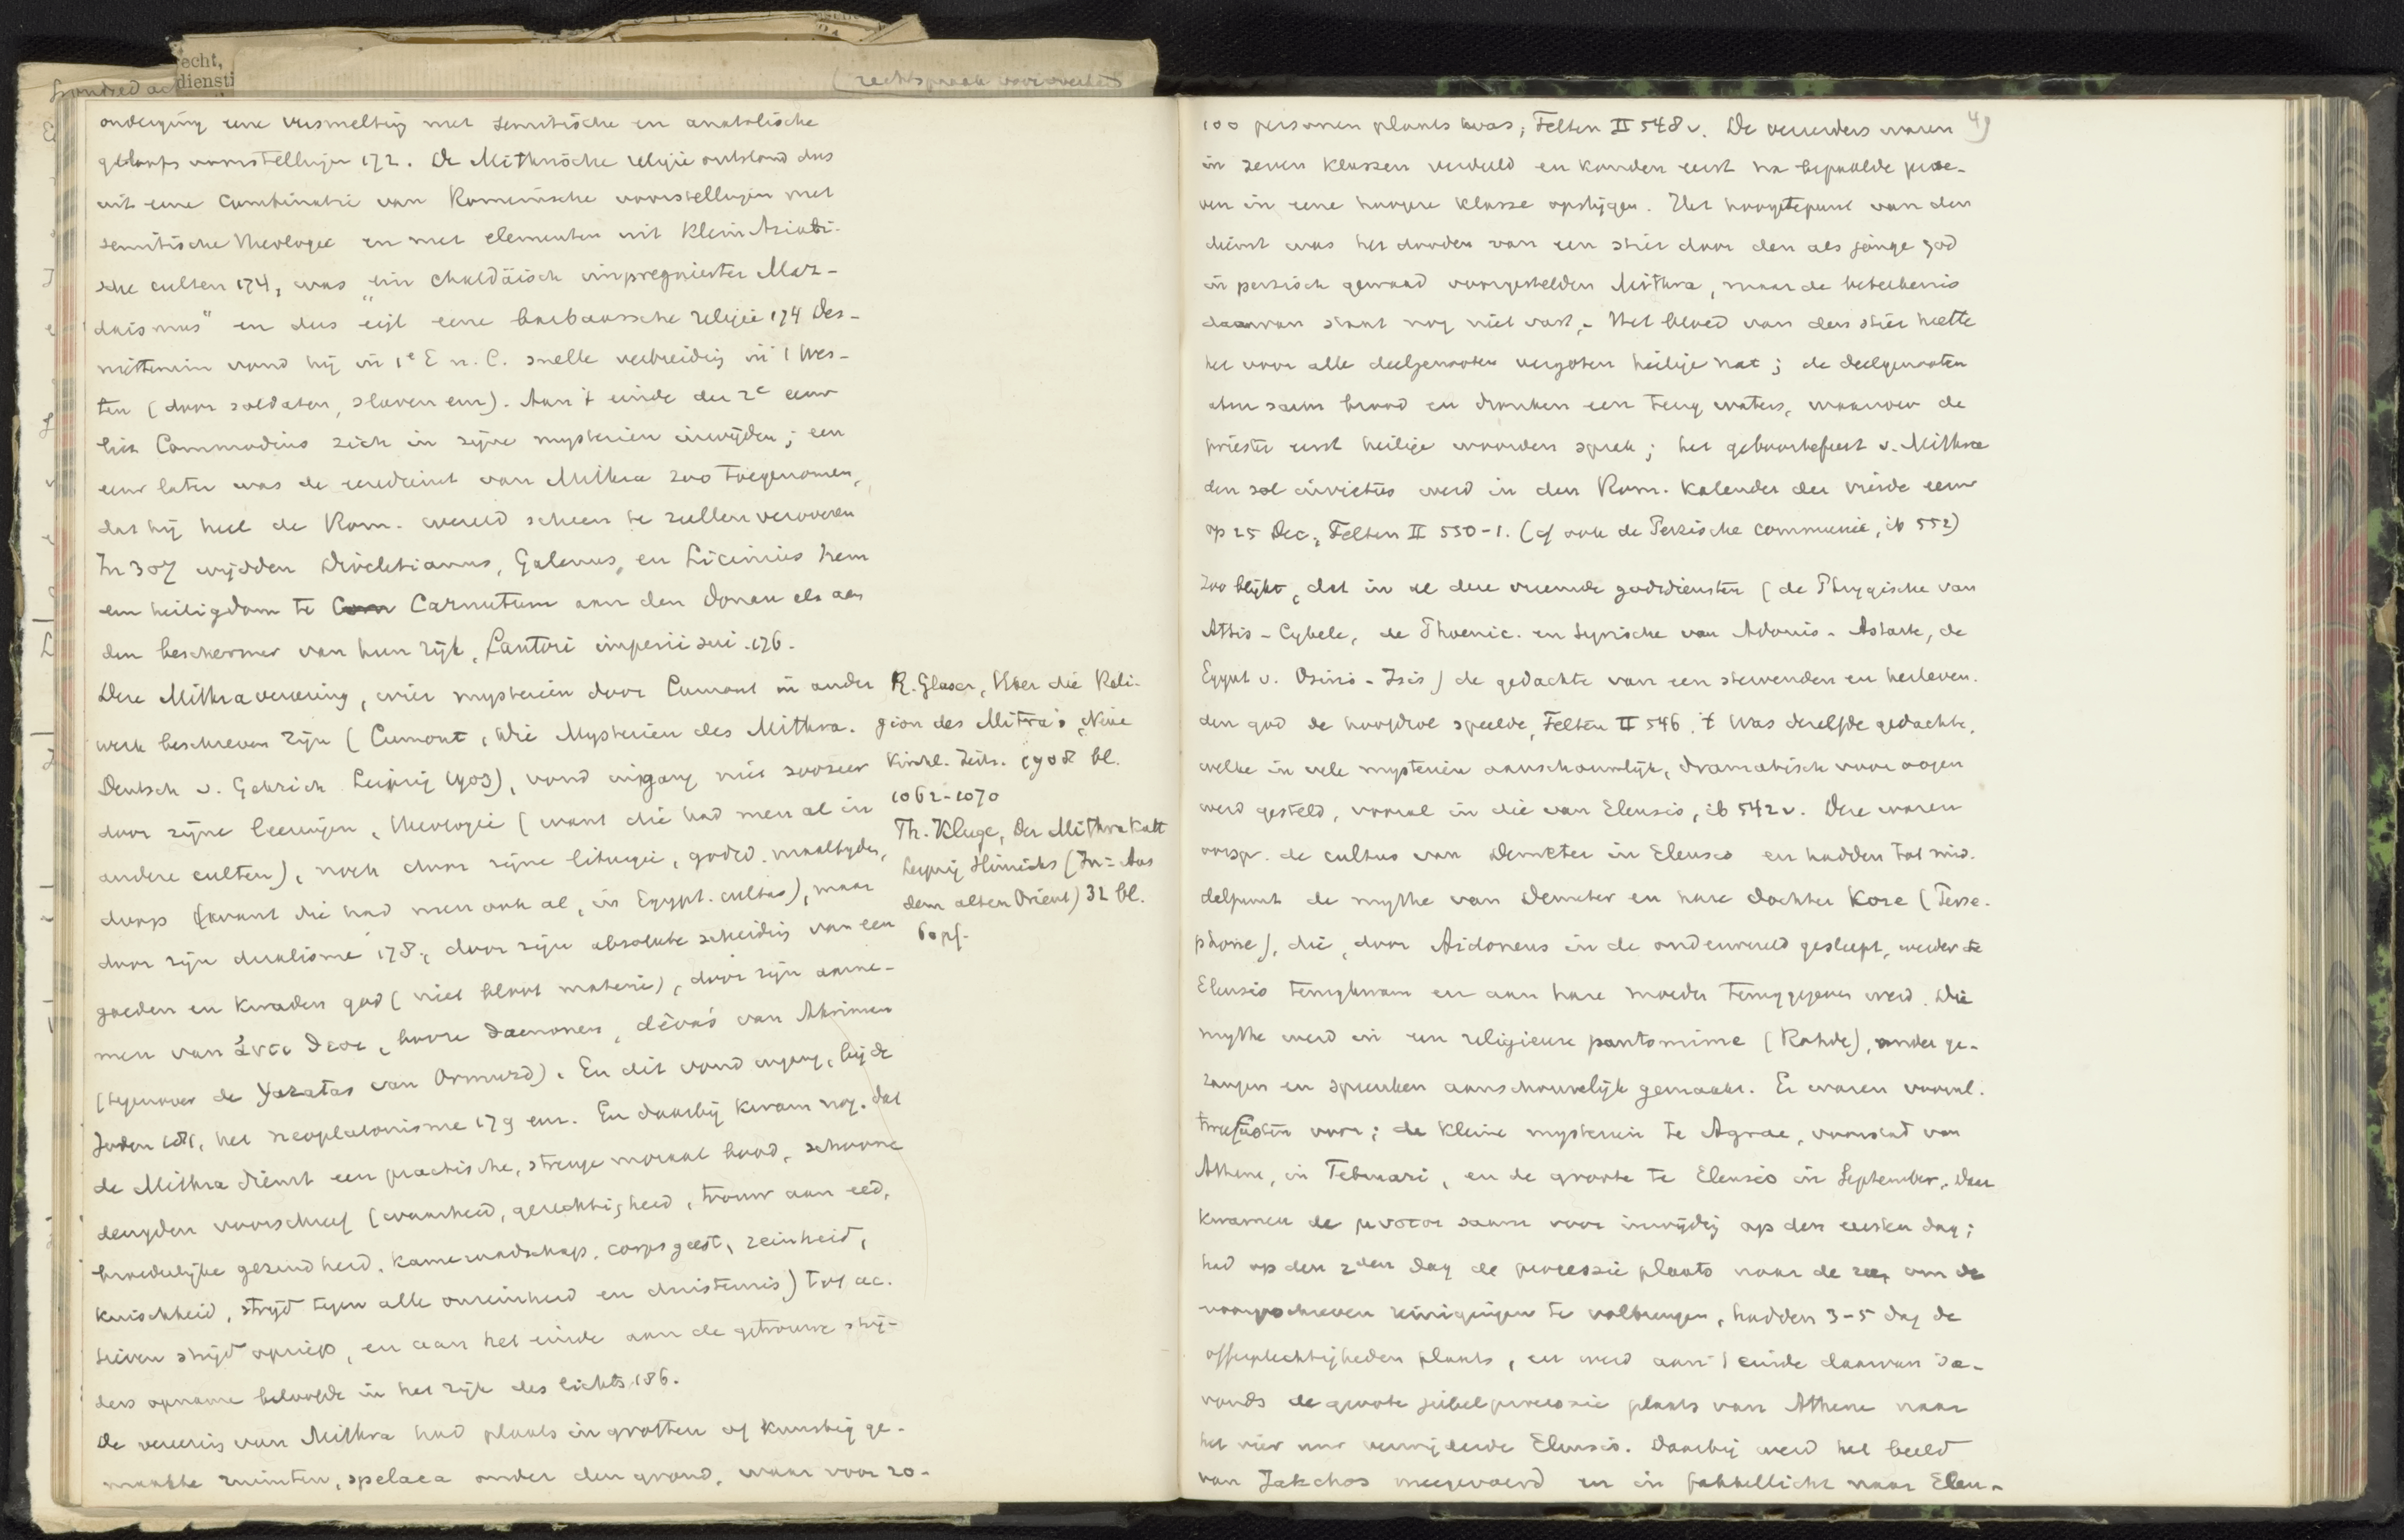 echt,
diensti
(rechtspraak
onderging eene versmelting met semitische en anatolische
geloofsvoorstellingen 172. De Mithrische religie ontstond dus
uit eene combinatie van Romeinsche voorstellingen met
semitische theologie en met elementen uit Klein Aziati-
sche culten 174, was "ein chaldäisch imprägnierter Maz-
daismus" en dus eigl eene barbaarsche religie 174 Des-
niettemin vond hij in 1e E n. C. snelle verbreiding in 't Wes-
ten (door soldaten, slaven enz). Aan 't einde der 2e eeuw
liet Commodius zich in zijne mysterien inwijden; een
eeuw later was de eeredienst van Mithra zoo toegenomen,
dat hij heel de Rom. wereld scheen te zullen veroveren
In 307 wijdden Diocletianus, Galerius, en Licinius hem
een heiligdom te Carnutum aan den Donau als aan
den beschermer van hun rijk, fautori imperii sui. 176.
Deze Mithravereering, wier mysterien door Cumont in ander
werk beschreven zijn (Cumont, Die Mysterien des Mithra.
Deutsch v. Gehrich Leipzig 1903), vond ingang niet zoozeer
door zijne leeringen, theologie (want die had men al in
andere culten), noch door zijne liturgie, godsd. maaltijden,
doops (want die had men ook al, in Egypt. cultus), maar
door zijn dualisme 178, door zijn absolute scheiding van een
goeden en kwaden god (niet bloot materie), door zijn aanne-
men van ἀντι θεοι, booze daemonen, dêva's van Ahriman
(tegenover de Yazatas van Ormuzd). En dit vond ingang, bij de
Joden 181, het neoplatonisme 179 enz. En daarbij kwam nog. dat
de Mithra dienst een practische, strenge moraal bood, schoone
deugden voorschreef (waarheid, gerechtigheid, trouw aan eed,
broederlijke gezindheid, kameraadschap, corpsgeest, reinheid,
kuischheid, strijd tegen alle onreinheid en duisternis) tot ac-
tieven strijd opriep, en aan het einde aan de getrouwe strij-
ders opname beloofde in het rijk des lichts 186.
De vereering van Mithra had plaats in grotten of kunstig ge-
maakte ruimten, spelaea onder den grond, waar voor 20-
R. Glaser, Ueber die Reli-
gion des Mithra's, Neue
Kirchl. Zeits. 1908 bl.
1062-1070
Th. Kluge, Der Mithrakult
Leipzig Hinrichs (In: Aus
dem alten Orient) 32 bl.
60 pf.
49
100 personen plaats was, Felten II 548v. De vereerders waren
in zeven klassen verdeeld en konden eerst na bepaalde proe-
ven in eene hoogere klasse opstijgen. Het hoogtepunt van den
dienst was het dooden van een stier door den als jonge god
in perzisch gewaad voorgestelden Mithra, maar de beteekenis
daarvan staat nog niet vast. Het bloed van den stier heette
het voor alle deelgenooten vergoten heilige nat; de deelgenooten
aten saam brood en dronken een teug water, waarover de
priester eerst heilige woorden sprak; het geboortefeest v. Mithra
den sol invictus werd in den Rom. kalender der vierde eeuw
op 25 Dec., Felten II 550-1. (cf ook de Perzische communie, ib 552)
Zoo blijkt, dat in al deze vreemde godsdiensten (de Phrygische van
Attis-Cybele, de Phoenic. en Syrische van Adonis-Astarte, de
Egypt v. Osiris-Isis) de gedachte van een stervenden en herleven-
den god de hoofdrol speelde, Felten II 546. 't Was dezelfde gedachte,
welke in vele mysterien aanschouwlijk, dramatisch voor oogen
werd gesteld, vooral in die van Eleusis, ib 542v. Deze waren
oorspr. de cultus van Demeter in Eleusis en hadden tot mid-
delpunt de mythe van Demeter en hare dochter Kore (Perse-
phone), die, door Aidoneus in de onderwereld gesleept, weder te
Eleusis terugkwam en aan hare moeder teruggegeven werd. Die
mythe werd in een religieuze pantomime (Rohde), onder ge-
zangen en spreuken aanschouwelijk gemaakt. Er waren vooral
twee feesten voor; de kleine mysterien te Agrae, voorstad van
Athene, in Februari, en de groote te Eleusis in September. Daar
kwamen de μυσται saam voor inwijding op den eersten dag;
had op den 2den dag de processie plaats naar de zee, om de
voorgeschreven reinigingen te volbrengen, hadden 3-5 dag de
offerplechtigheden plaats, en werd aan 't einde daarvan 's a-
vonds de groote jubelprocessie plaats van Athene naar
het vier uur verwijderde Eleusis. Daarbij werd het beeld
van Jakchos meegevoerd en in fakkellicht naar Eleu-